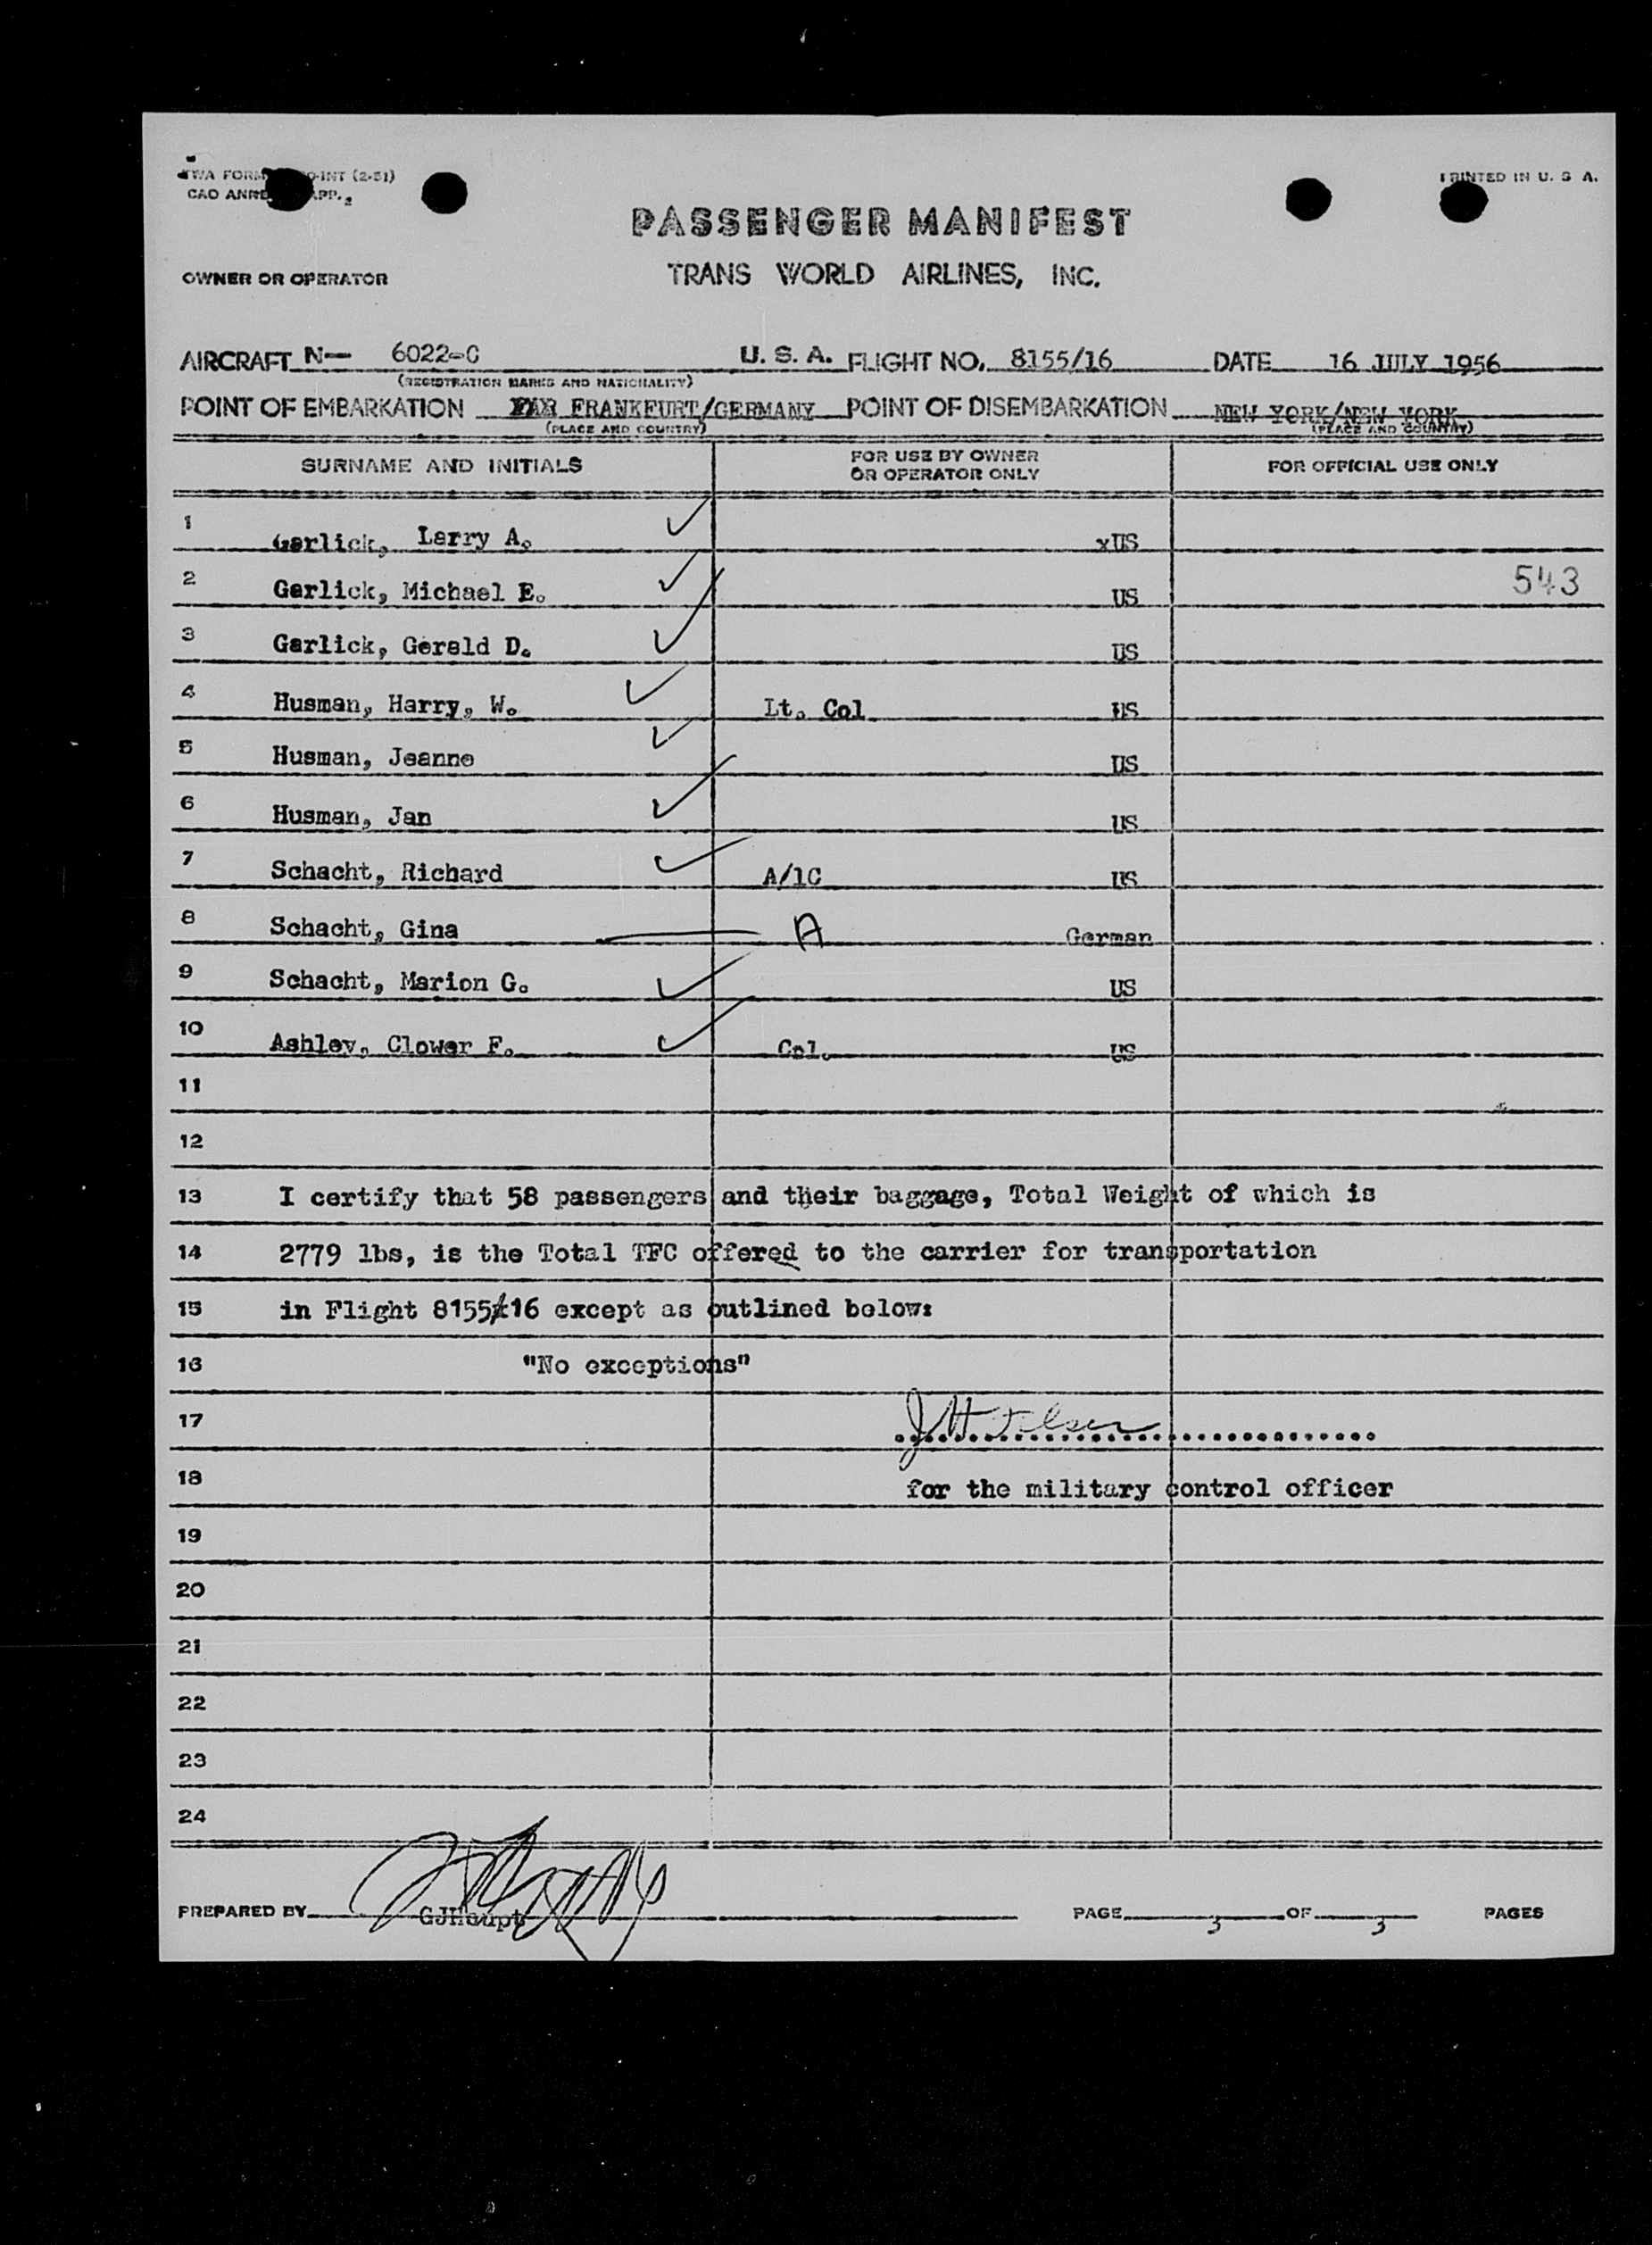 TWA FORM -INT (2-51)
CAO ANNE APP. 2
PRINTED IN U. S A.
PASSENGER MANIFEST
OWNER OR OPERATOR TRANS WORLD AIRLINES, INC.
AIRCRAFT N— 6022-C U. S. A. FLIGHT NO. 8155/16 DATE 16 JULY 1956
(REGISTRATION MARKS AND NATIONALITY)
POINT OF EMBARKATION FRANKFURT/GERMANY POINT OF DISEMBARKATION NEW YORK/NEW YORK
(PLACE AND COUNTRY) (PLACE AND COUNTRY)
SURNAME AND INITIALS FOR USE BY OWNER OR OPERATOR ONLY FOR OFFICIAL USE ONLY
1 Garlick, Larry A. xUS
2 Garlick, Michael E. US 543
3 Garlick, Gerald D. US
4 Husman, Harry, W. Lt. Col US
5 Husman, Jeanne US
6 Husman, Jan US
7 Schacht, Richard A/1C US
8 Schacht, Gina A German
9 Schacht, Marion G. US
10 Ashley, Clower F. Col. US
11
12
13 I certify that 58 passengers and their baggage, Total Weight of which is
14 2779 lbs, is the Total TFC offered to the carrier for transportation
15 in Flight 8155/16 except as outlined below:
16 "No exceptions"
17
18 for the military control officer
19
20
21
22
23
24
PREPARED BY GJHaupt PAGE 3 OF 3 PAGES